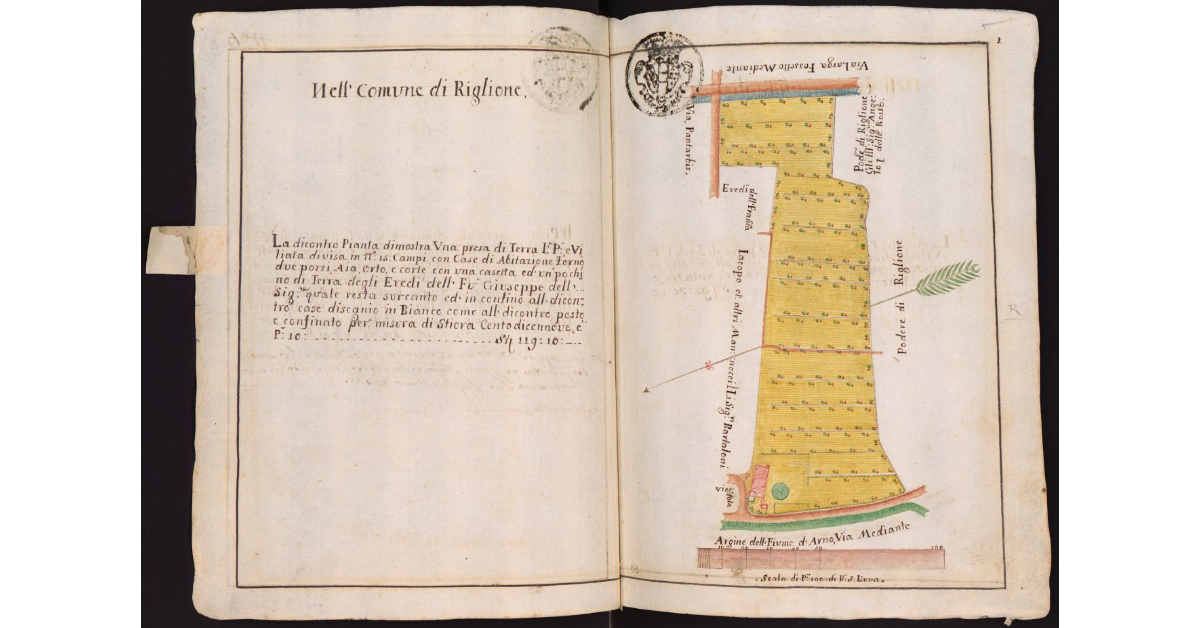 Nell' Comune di Riglione,
La dicontro Pianta dimostra Una presa di Terra L.ª P.ª e Vi
tiata divisa in n.º 15: Campi, con Case di Abitazione Forno
due pozzi, Aia, Orto, e corte con una casetta ed un' pochi
no di Terra degli Eredi dell' Fu Giuseppe dell' ...
Sig.re quale resta surcanto ed in confino all' dicon:
tro case disegnio in Bianco come all' dicontro posto
e confinato per misura di Stiora Cento dicennove, e
P.e 10: Sti 119: 10:
1
Via Larga Fossetto Mediante
Via, Pantarbis.
Pode.e di Riglione
Gli Ill. Sig.ri Ange:
io l delle Roste:
Eredi
dell' Frassa
Iacopo et altri Mannocci
Li Sig.ri Bartaloni
Podere di Riglione
Viottola
Argine dell' Fiume d' Arno, Via Mediante
100
Scala di P.e 100. di
53
R